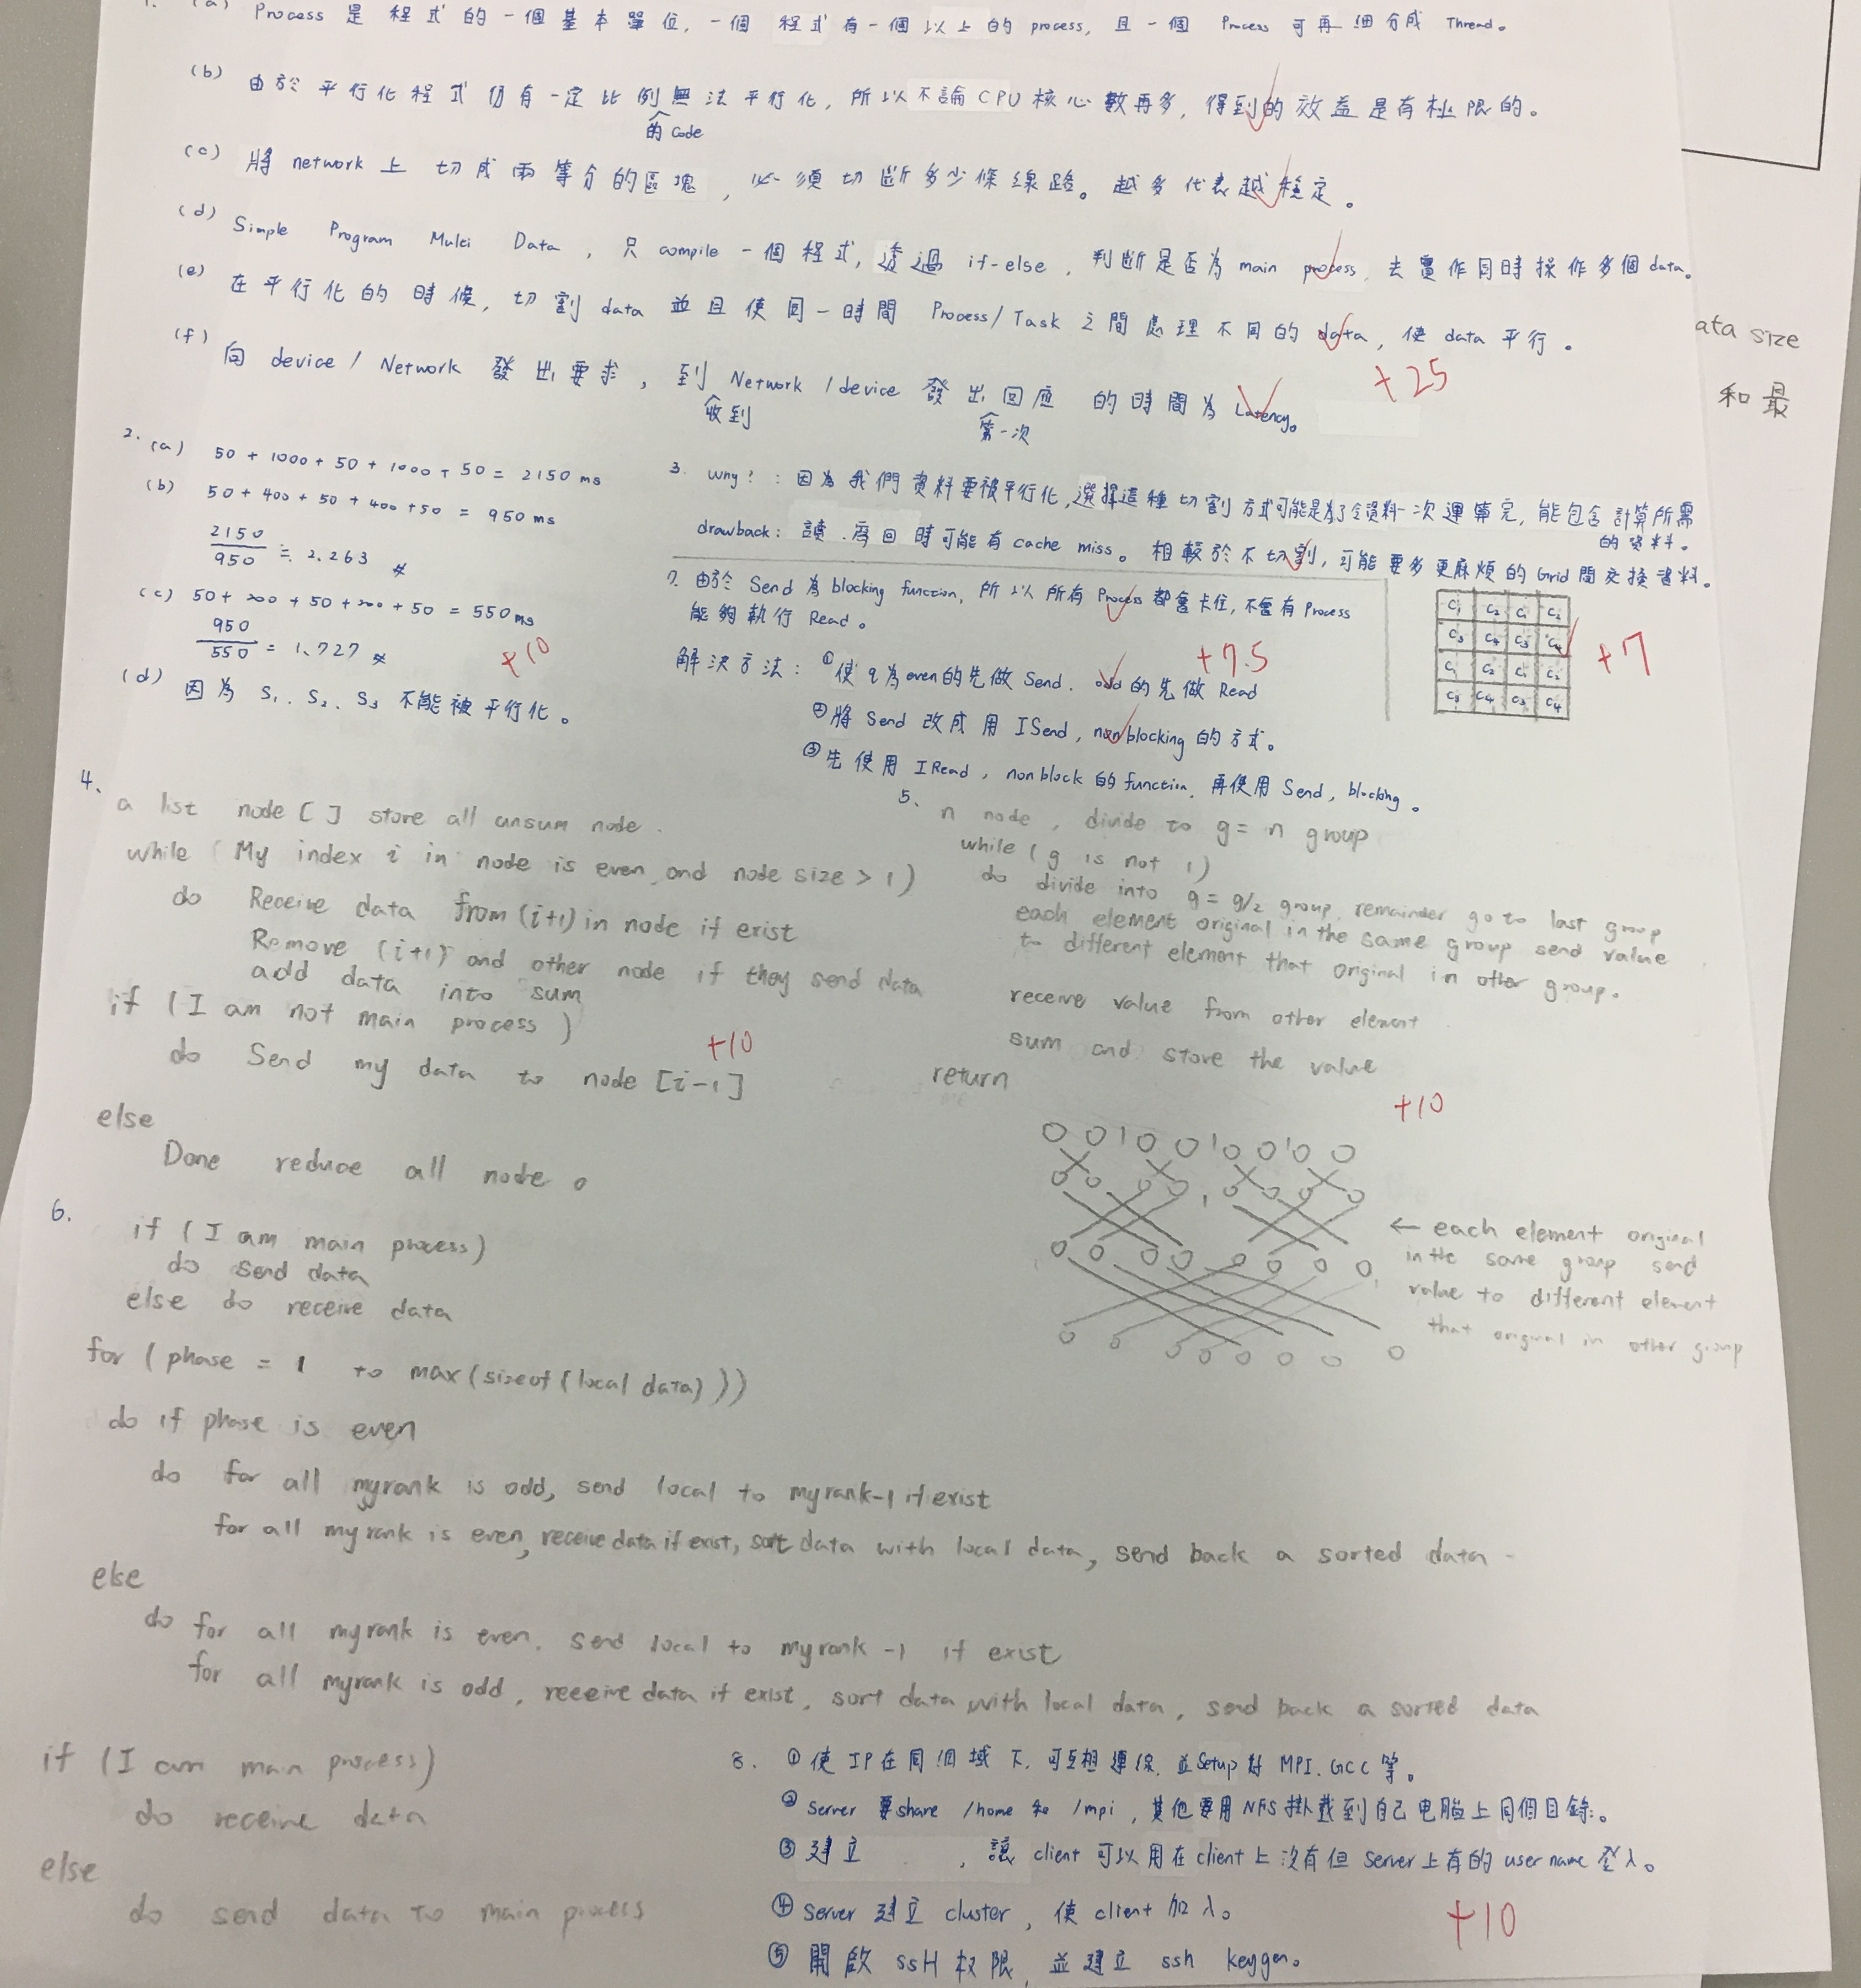 1. (a) Process 是程式的一個基本單位,一個程式有一個以上的process,且一個Process可再細分成Thread。
(b) 由於平行化程式仍有一定比例無法平行化,所以不論CPU核心數再多,得到的效益是有極限的。
的code
(c) 將network上切成兩等分的區塊,必須切斷多少條線路。越多代表越穩定。
(d) Simple Program Multi Data,只compile一個程式,透過if-else,判斷是否為main process,去實作同時操作多個data。
(e) 在平行化的時候,切割data並且使同一時間Process/Task之間處理不同的data,使data平行。
(f) 向device/Network發出要求,到Network/device發出回應的時間為Latency。
收到 第一次
+25
ata size
和最
2. (a) 50+1000+50+1000+50=2150 ms
(b) 50+400+50+400+50=950 ms
2150/950 ≒ 2.263 #
(c) 50+200+50+200+50=550ms
950/550 = 1.727 #
+10
(d) 因為S1、S2、S3不能被平行化。
3. why?:因為我們資料要被平行化,選擇這種切割方式可能是為了令資料一次運算完,能包含計算所需
的資料。
drawback:讀、寫回時可能有cache miss。相較於不切割,可能要多更麻煩的Grid間交換資料。
C1 C2 C1 C2
C3 C4 C3 C4
C1 C2 C1 C2
C3 C4 C3 C4
+7
7. 由於Send為blocking function,所以所有Process都會卡住,不會有Process
能夠執行Read。
解決方法:①使q為even的先做Send、odd的先做Read
+7.5
②將Send改成用ISend,nonblocking的方式。
③先使用IRead,nonblock的function,再使用Send,blocking。
4. a list node [] store all unsum node.
while (My index i in node is even and node size > 1)
do Receive data from (i+1) in node if exist
Remove (i+1) and other node if they send data
add data into sum
if (I am not main process)
do Send my data to node [i-1]
+10
else
Done reduce all node。
5. n node, divide to g = n group
while (g is not 1)
do divide into g = g/2 group, remainder go to last group
each element original in the same group send value
to different element that original in other group.
receive value from other element
sum and store the value
return
+10
← each element original
in the same group send
value to different element
that original in other group
6. if (I am main process)
do send data
else do receive data
for (phase = 1 to max(sizeof(local data)))
do if phase is even
do for all myrank is odd, send local to myrank-1 if exist
for all myrank is even, receive data if exist, sort data with local data, send back a sorted data
else
do for all myrank is even, send local to myrank -1 if exist
for all myrank is odd, receive data if exist, sort data with local data, send back a sorted data
if (I am main process)
do receive data
else
do send data to main process
8. ①使IP在同個域下,可互相連線,並Setup好MPI、GCC等。
②Server要share /home和/mpi,其他要用NFS掛載到自己电脑上同個目錄。
③建立 ,讓client可以用在client上沒有但Server上有的user name登入。
④Server建立cluster,使client加入。
+10
⑤開啟SSH权限,並建立ssh keygen。